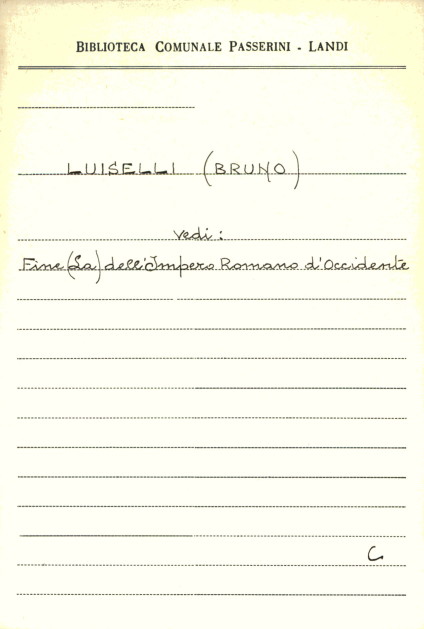 BIBLIOTECA COMUNALE PASSERINI - LANDI
LUISELLI (BRUNO)
vedi :
Fine (La) dell'Impero Romano d'Occidente
C